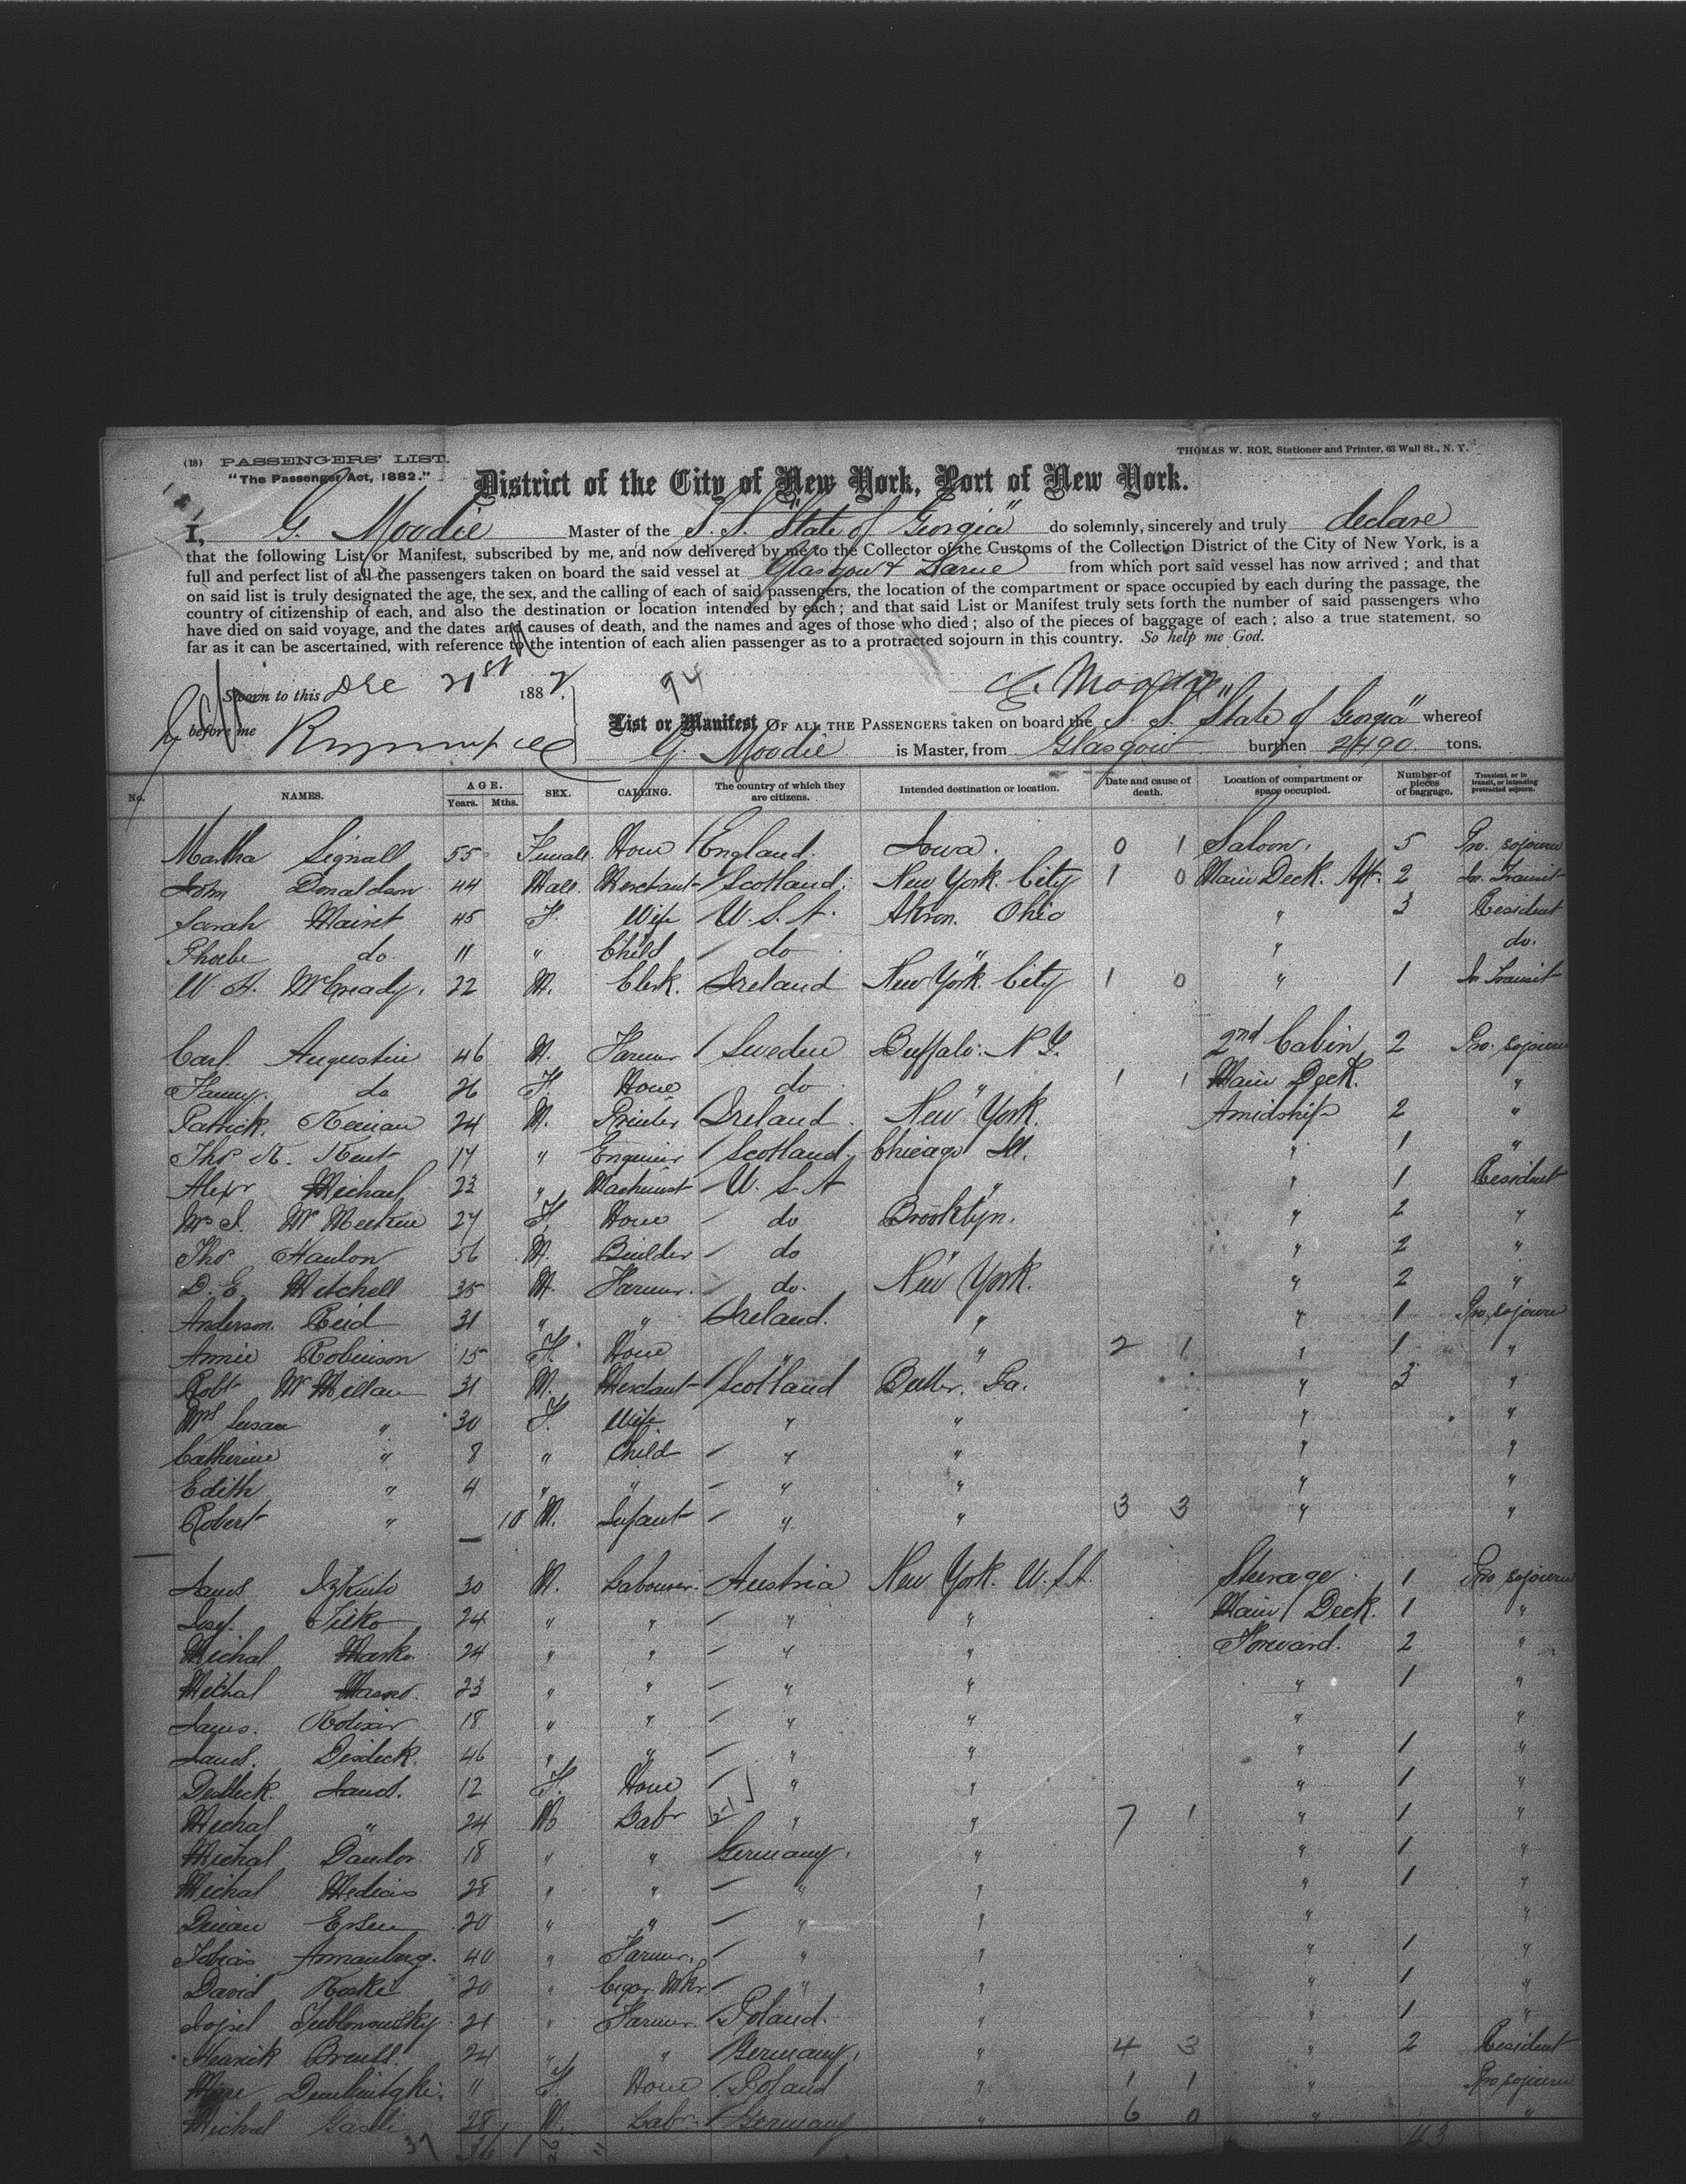 (18) PASSENGERS' LIST.
THOMAS W. ROE, Stationer and Printer, 63 Wall St., N. Y.
"The Passenger Act, 1882."
District of the City of New York, Port of New York.
I, G. Moodie Master of the S. S. "State of Georgia" do solemnly, sincerely and truly declare
that the following List or Manifest, subscribed by me, and now delivered by me to the Collector of the Customs of the Collection District of the City of New York, is a
full and perfect list of all the passengers taken on board the said vessel at Glasgow & Larne from which port said vessel has now arrived; and that
on said list is truly designated the age, the sex, and the calling of each of said passengers, the location of the compartment or space occupied by each during the passage, the
country of citizenship of each, and also the destination or location intended by each; and that said List or Manifest truly sets forth the number of said passengers who
have died on said voyage, and the dates and causes of death, and the names and ages of those who died; also of the pieces of baggage of each; also a true statement, so
far as it can be ascertained, with reference to the intention of each alien passenger as to a protracted sojourn in this country. So help me God.
Sworn to this Dec 21st 188
94
G. Moodie
before me
List or Manifest OF ALL THE PASSENGERS taken on board the S. S. "State of Georgia" whereof
G. Moodie is Master, from Glasgow burthen 2490 tons.
No. NAMES. AGE. Years. Mths. SEX. CALLING. The country of which they are citizens. Intended destination or location. Date and cause of death. Location of compartment or space occupied. Number of pieces of baggage. Transient, or in transit, or intending protracted sojourn.
Martha Signall 55 Female Home England. Iowa. 0 1 Saloon. 5 Pro. sojourn
John Donaldson 44 Male Merchant Scotland. New York City 1 0 Main Deck. Aft. 2 In Transit
Sarah 45 F. Wife U. S. A. Akron. Ohio " 3 Resident
Phoebe do. 11 " Child do " " do.
W. A. McCready. 22 M. Clerk. Ireland New York City 1 0 " 1 In Transit
Carl Augustin 46 M. Farmer Sweden Buffalo. N Y. 2nd Cabin 2 Pro. sojourn
Fanny. do 26 F. Home do " 1 1 Main Deck. "
Patrick. 24 M. Ireland New York. Amidships 2 "
Thos R. Kent 17 " Engineer Scotland. Chicago Ill. " 1 "
Alexr Michael 23 " Machinist U. S. A " " 1 Resident
Mrs 27 F. Home do Brooklyn. " 2 "
Thos Hanlon 56 M. Builder do " " 2 "
D. E. Mitchell 35 M. Farmer. do. New York. " 2 "
Anderson Reid 31 " " Ireland. " " 1 Pro. sojourn
Annie Robinson 15 F. Home " " 2 1 " 1 "
Robt McMillan 31 M. Merchant Scotland Butler. Pa. " 3 "
Mrs Susan " 30 F. Wife " " " "
Catherine " 8 " Child " " " "
Edith " 4 " " " " " "
Robert " 10 M. Infant " " 3 3 " "
30 M. Labourer. Austria New York. U. S. A. Steerage. 1 Pro sojourn
24 " " " " Main Deck. 1 "
Michal Marko. 24 " " " " Forward. 2 "
Michal 23 " " " " " 1 "
18 " " " " " "
46 " " " " " 1 "
12 F. Home " " " 1 "
Michal " 24 M Labr " " 7 1 " 1 "
Michal 18 " " Germany. " " 1 "
Michal 28 " " " " " 1 "
20 " " " " " "
Tobias 40 " Farmer. " " " 1 "
David 20 " Cigar Mkr " " " 1 "
21 " Farmer. Poland. " " 1 "
24 " " Germany. " 4 3 " 2 Resident
11 F. Home Poland " 1 1 " Pro sojourn
Michal 28 M. Labr. Germany " 6 0 " "
37 36 1 26 11 43